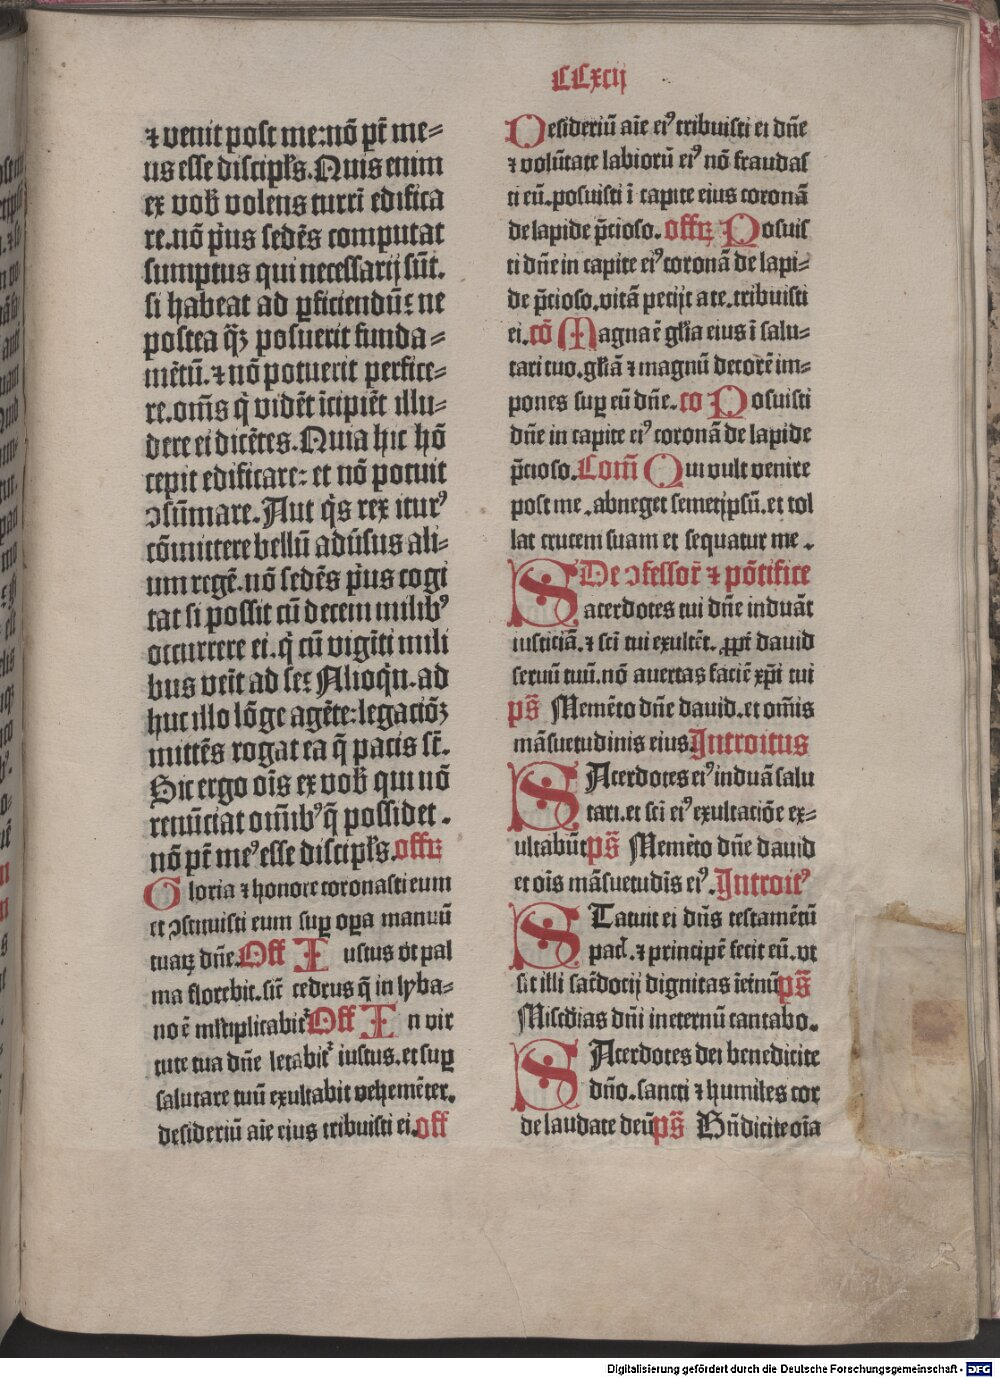 CCxcij
⁊ venit post me: nō pt̄ me⸗
us esse discipl̓s. Quis enim
ex vob̄ volens turrī edifica
re. nō pr̓us sedēs computat
sumptus qui necessarij sūt.
si habeat ad ꝑficiendū: ne
postea qꝫ posuerit funda⸗
mētū. ⁊ nō potuerit perfice⸗
re. om̄s q̓ vidēt īcipiēt illu⸗
dere ei dicētes. Quia hic hō
cepit edificare: et nō potuit
ↄsūmare. Aut q̓s rex iturꝰ
cōmittere bellū aduīsus ali⸗
um regē. nō sedēs pr̓us cogi
tat si possit cū decem milibꝰ
occurrere ei. q̓ cū vigīti mili
bus veīt ad se: Alioq̓n. ad
huc illo lōge agēte: legaciōꝫ
mittēs rogat ea q̄ pacis st̄.
Sic ergo oīs ex vob̄ qui nō
renūciat om̄ibꝰ q̄ possidet .
nō pt̄ meꝰ esse discipl̓s. offꝝ
Gloria ⁊ honore coronasti eum
et ↄstituisti eum suꝑ oꝑa manuū
tuaꝝ dn̄e. Off Iustus vt pal
ma florebit. sic̄ cedrus q̄ in lyba⸗
no ē ml̓tiplicabit᷑ Off In vir
tute tua dn̄e letabit᷑ iustus. et suꝑ
salutare tuū exultabit vehemēter.
desideriū aīe eius tribuisti ei. off
Desideriū aīe eiꝰ tribuisti ei dn̄e
⁊ volūtate labiorū eiꝰ nō fraudas
ti eū. posuisti ī capite eius coronā
de lapide p̄cioso. offꝝ Posuis
ti dn̄e in capite eiꝰ coronā de lapi⸗
de p̄cioso. vitā petijt a te. tribuisti
ei. cō Magna ē gl̓ia eius ī salu⸗
tari tuo. gl̓iā ⁊ magnū decorē im⸗
pones suꝑ eū dn̄e. co Posuisti
dn̄e in capite eiꝰ coronā de lapide
p̄cioso. Com̄ Qui vult venire
post me . abneget semetipsū. et tol
lat crucem suam et sequatur me .
De ↄfessor̄ ⁊ pōtifice
Sacerdotes tui dn̄e induāt
iusticiā. ⁊ sc̄i tui exultēt. ꝓpt̓ david
seruū tuū. nō auertas faciē xp̄i tui
ps̄ Memēto dn̄e david. et om̄is
māsuetudinis eius Introitus
SAcerdotes eiꝰ induā salu
tari. et sc̄i eiꝰ exultaciōe ex⸗
ultabūt ps̄ Memēto dn̄e david
et oīs māsuetudīs eiꝰ. Introitꝰ
STatuit ei dn̄s testamētū
pac̓. ⁊ principē fecit eū. vt
sit illi sac̄dotij dignitas ī et̓nū ps̄
Misc̄dias dn̄i in eternū cantabo.
SAcerdotes dei benedicite
dn̄o. sancti ⁊ humiles cor
de laudate deū ps̄ Bn̄dicite oīa
Digitalisierung gefördert durch die Deutsche Forschungsgemeinschaft - DFG